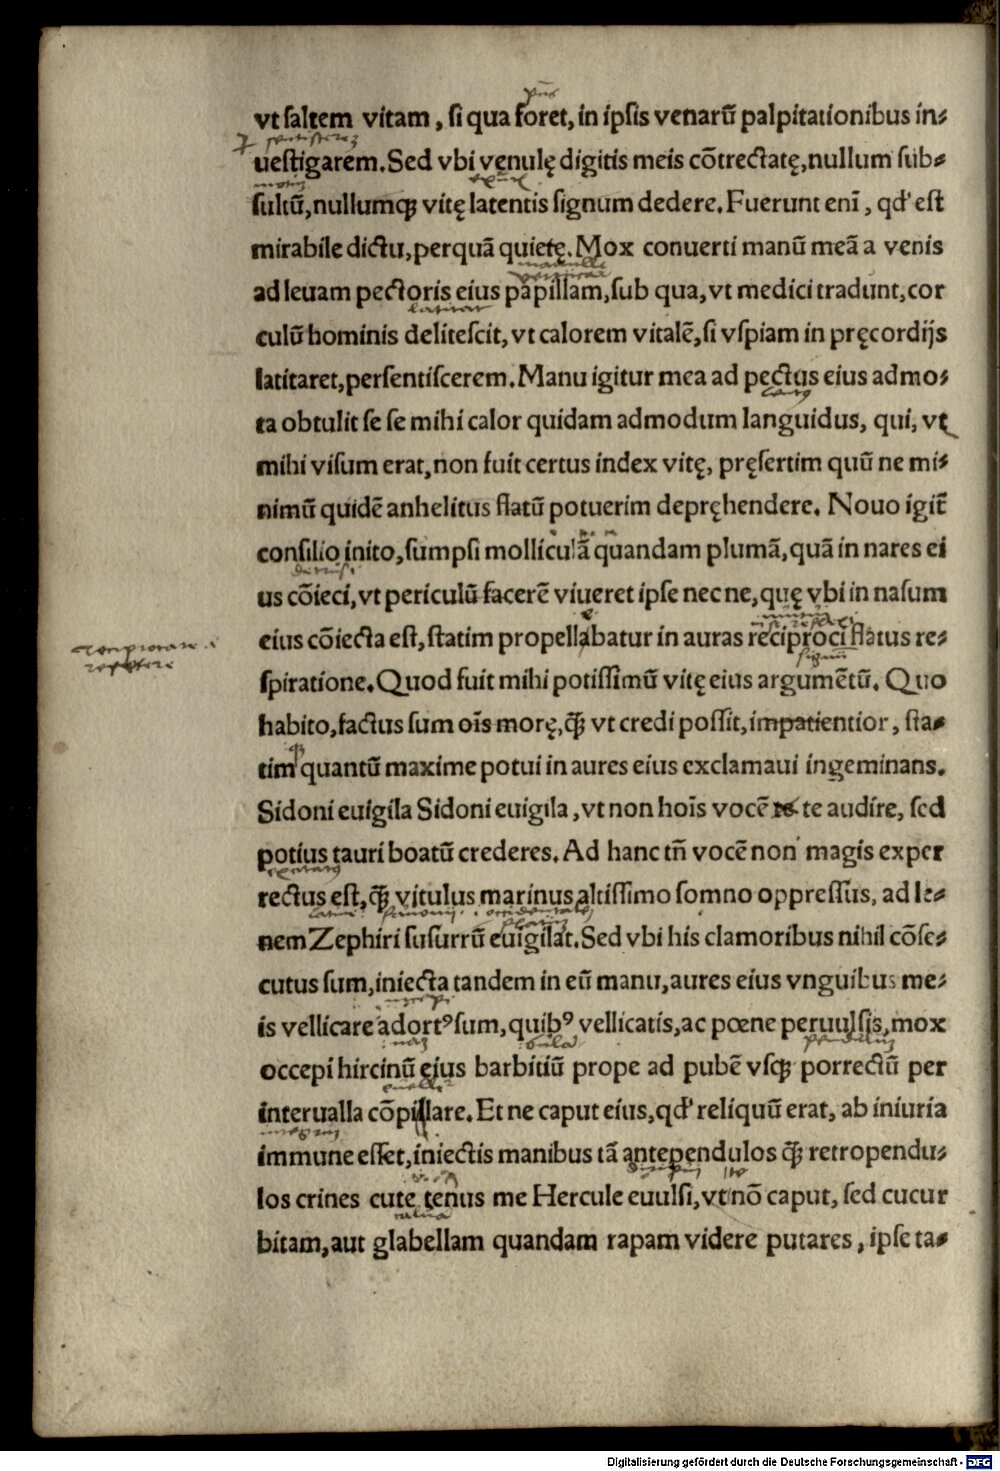 vt saltem vitam, si qua foret, in ipsis venarũ palpitationibus in⸗
uestigarem. Sed vbi venulę digitis meis cõtrectatę, nullum sub⸗
sultũ, nullumqꝫ vitę latentis signum dedere. Fuerunt enĩ, qd' est
mirabile dictu, perquã quietę. Mox conuerti manũ meã a venis
ad leuam pectoris eius papillam, sub qua, vt medici tradunt, cor
culũ hominis delitescit, vt calorem vitalẽ, si vspiam in pręcordijs
latitaret, persentiscerem. Manu igitur mea ad pectus eius admo⸗
ta obtulit se se mihi calor quidam admodum languidus, qui, vt
mihi visum erat, non fuit certus index vitę, pręsertim quũ ne mi⸗
nimũ quidẽ anhelitus flatũ potuerim depręhendere. Nouo igit̃
consilio inito, sumpsi molliculã quandam plumã, quã in nares ei
us cõieci, vt periculũ facerẽ viueret ipse nec ne, quę vbi in nasum
eius cõiecta est, statim propellabatur in auras reciproci flatus re⸗
spiratione. Quod fuit mihi potissimũ vitę eius argumẽtũ. Quo
habito, factus sum oĩs morę, q̃ꝫ vt credi possit, impatientior, sta⸗
tim quantũ maxime potui in aures eius exclamaui ingeminans.
Sidoni euigila Sidoni euigila, vt non hoĩs vocẽ te audire, sed
potius tauri boatũ crederes. Ad hanc tñ vocẽ non magis exper
rectus est, q̃ꝫ vitulus marinus altissimo somno oppressus, ad le⸗
nem Zephiri susurrũ euigilat. Sed vbi his clamoribus nihil cõse⸗
cutus sum, iniecta tandem in eũ manu, aures eius vnguibus me⸗
is vellicare adortꝰ sum, quibꝰ vellicatis, ac pœne peruulsis, mox
occepi hircinũ eius barbitiũ prope ad pubẽ vsqꝫ porrectũ per
interualla cõpillare. Et ne caput eius, qd' reliquũ erat, ab iniuria
immune esset, iniectis manibus tã antependulos q̃ꝫ retropendu⸗
los crines cute tenus me Hercule euulsi, vt nõ caput, sed cucur
bitam, aut glabellam quandam rapam videre putares, ipse ta⸗
Digitalisierung gefördert durch die Deutsche Forschungsgemeinschaft - DFG